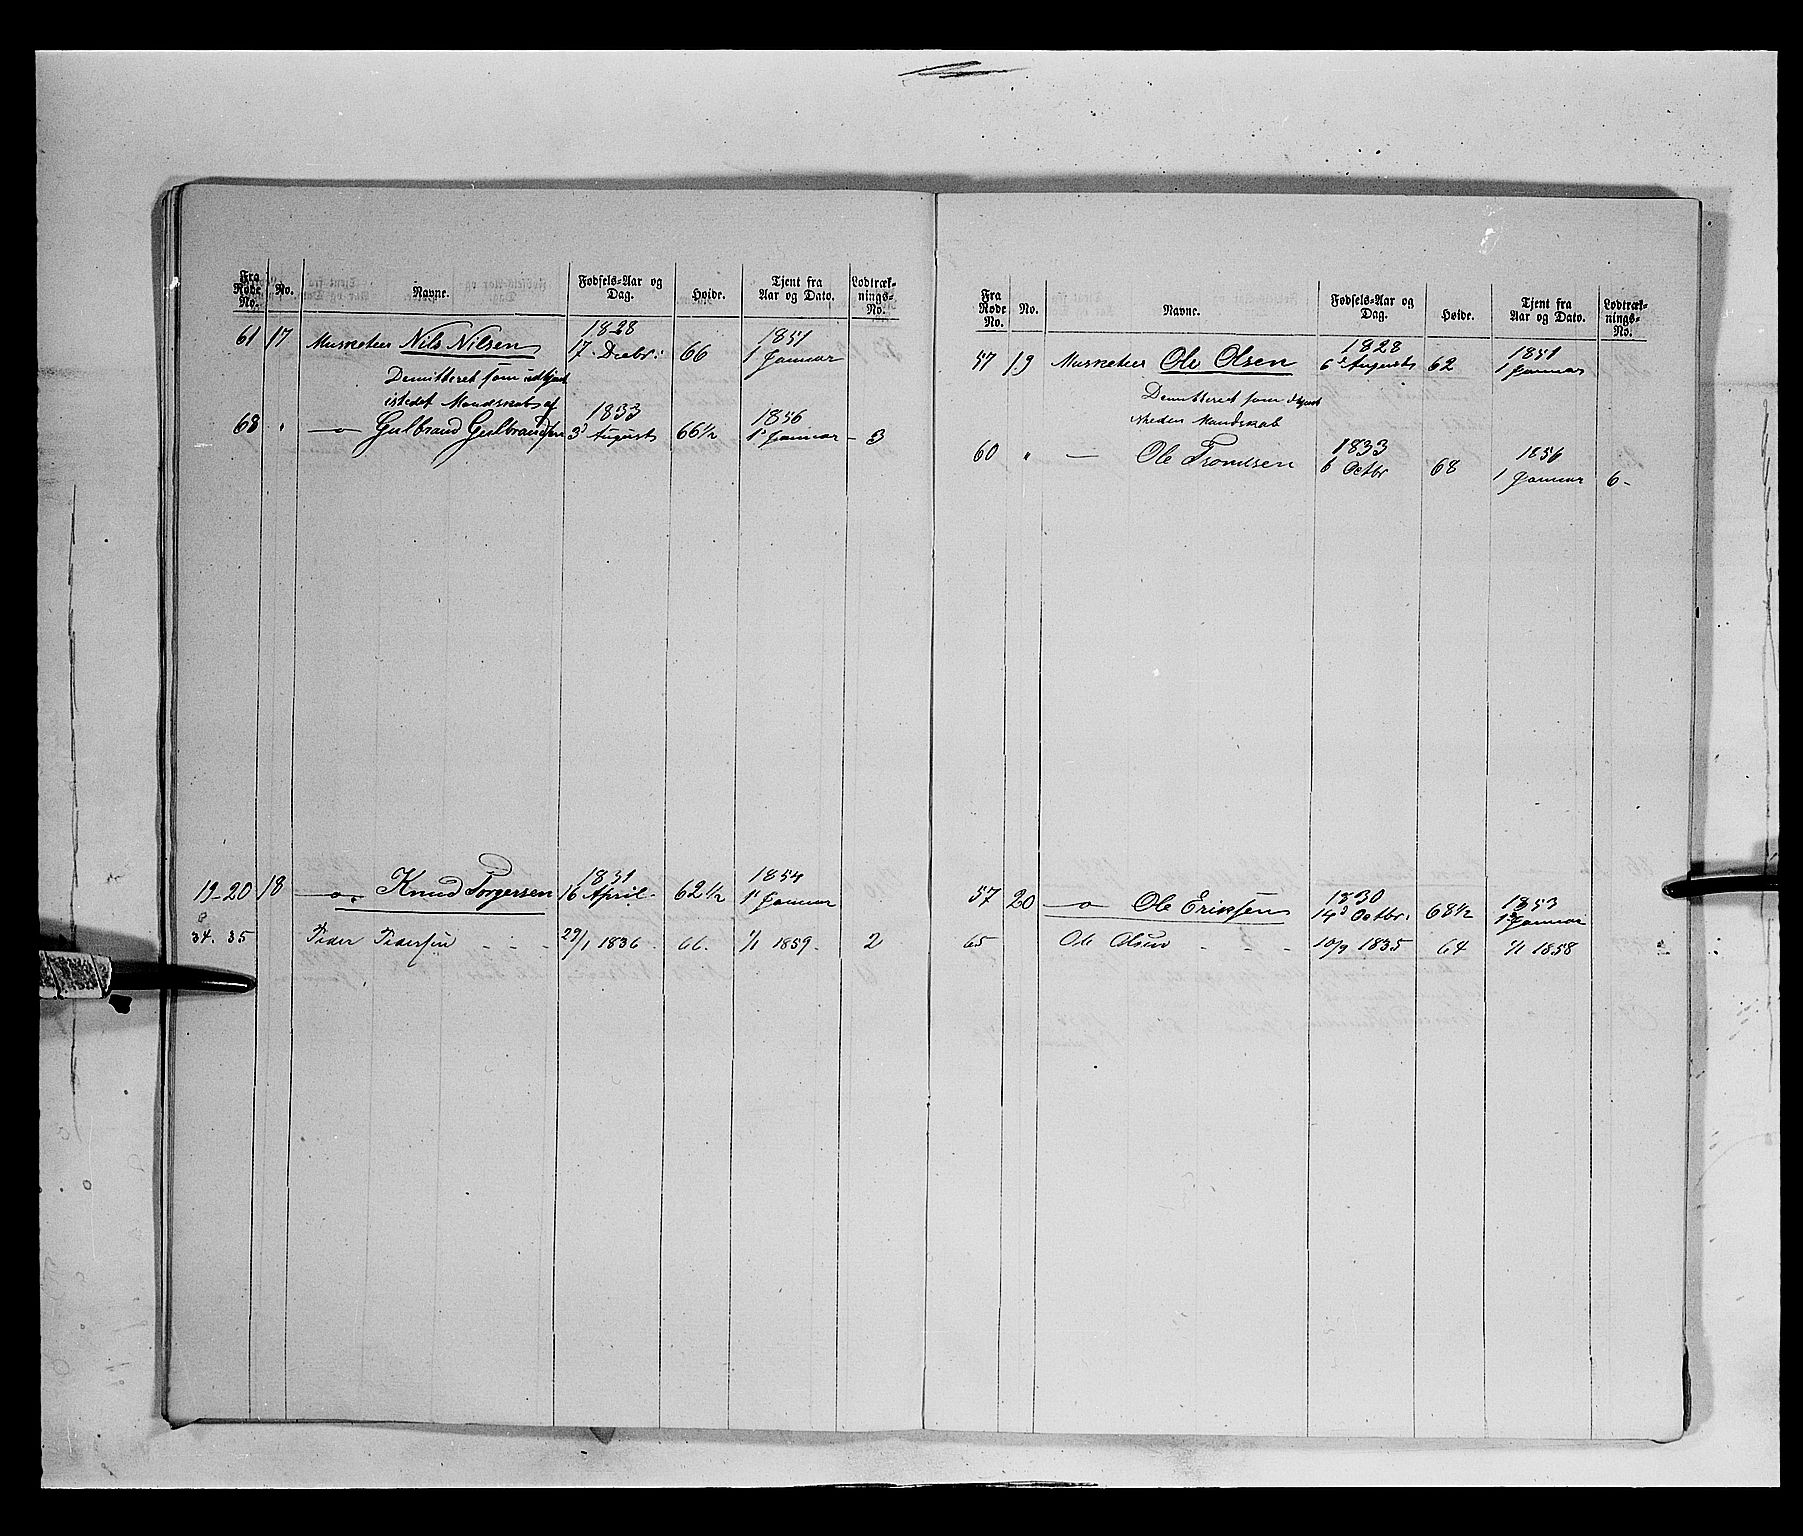 Fra Rode No. | No. | Navne. | Fødsels-Aar og Dag. | Høide. | Tjent fra Aar og Dato. | Lodtræk-nings-No.
61 | 17 | Musketeer Nils Nilsen | 1828 17 Decbr: | 66 | 1851 1 Januar
Demitteret som udtjent
istedet Mandskab af
68 | " | —o— Gulbrand Gulbrandsen | 1833 3d August | 66 1/2 | 1856 1st Januar | 3
19-20 | 18 | —o— Knud Torgersen | 1831 16 April | 62 1/2 | 1854 1st Januar
34. 35 | Peder Pedersen | 29/1 1836 | 66. | 1/1 1859 | 2
Fra Rode No. | No. | Navne. | Fødsels-Aar og Dag. | Høide. | Tjent fra Aar og Dato. | Lodtræk-nings-No.
57 | 19 | Musketeer Ole Olsen | 1828 6te August | 62 | 1851 1 Januar
Demitteret som udtjent
Mandskab
60 | " | — Ole Trondsen | 1833 6 Octbr | 68 | 1856 1 Januar | 6
57 | 20 | —o— Ole Eriksen | 1830 14d Octbr: | 68 1/2 | 1853 1st Januar
65 | Ole Olsen | 10/9 1835 | 64 | 1/1 1858